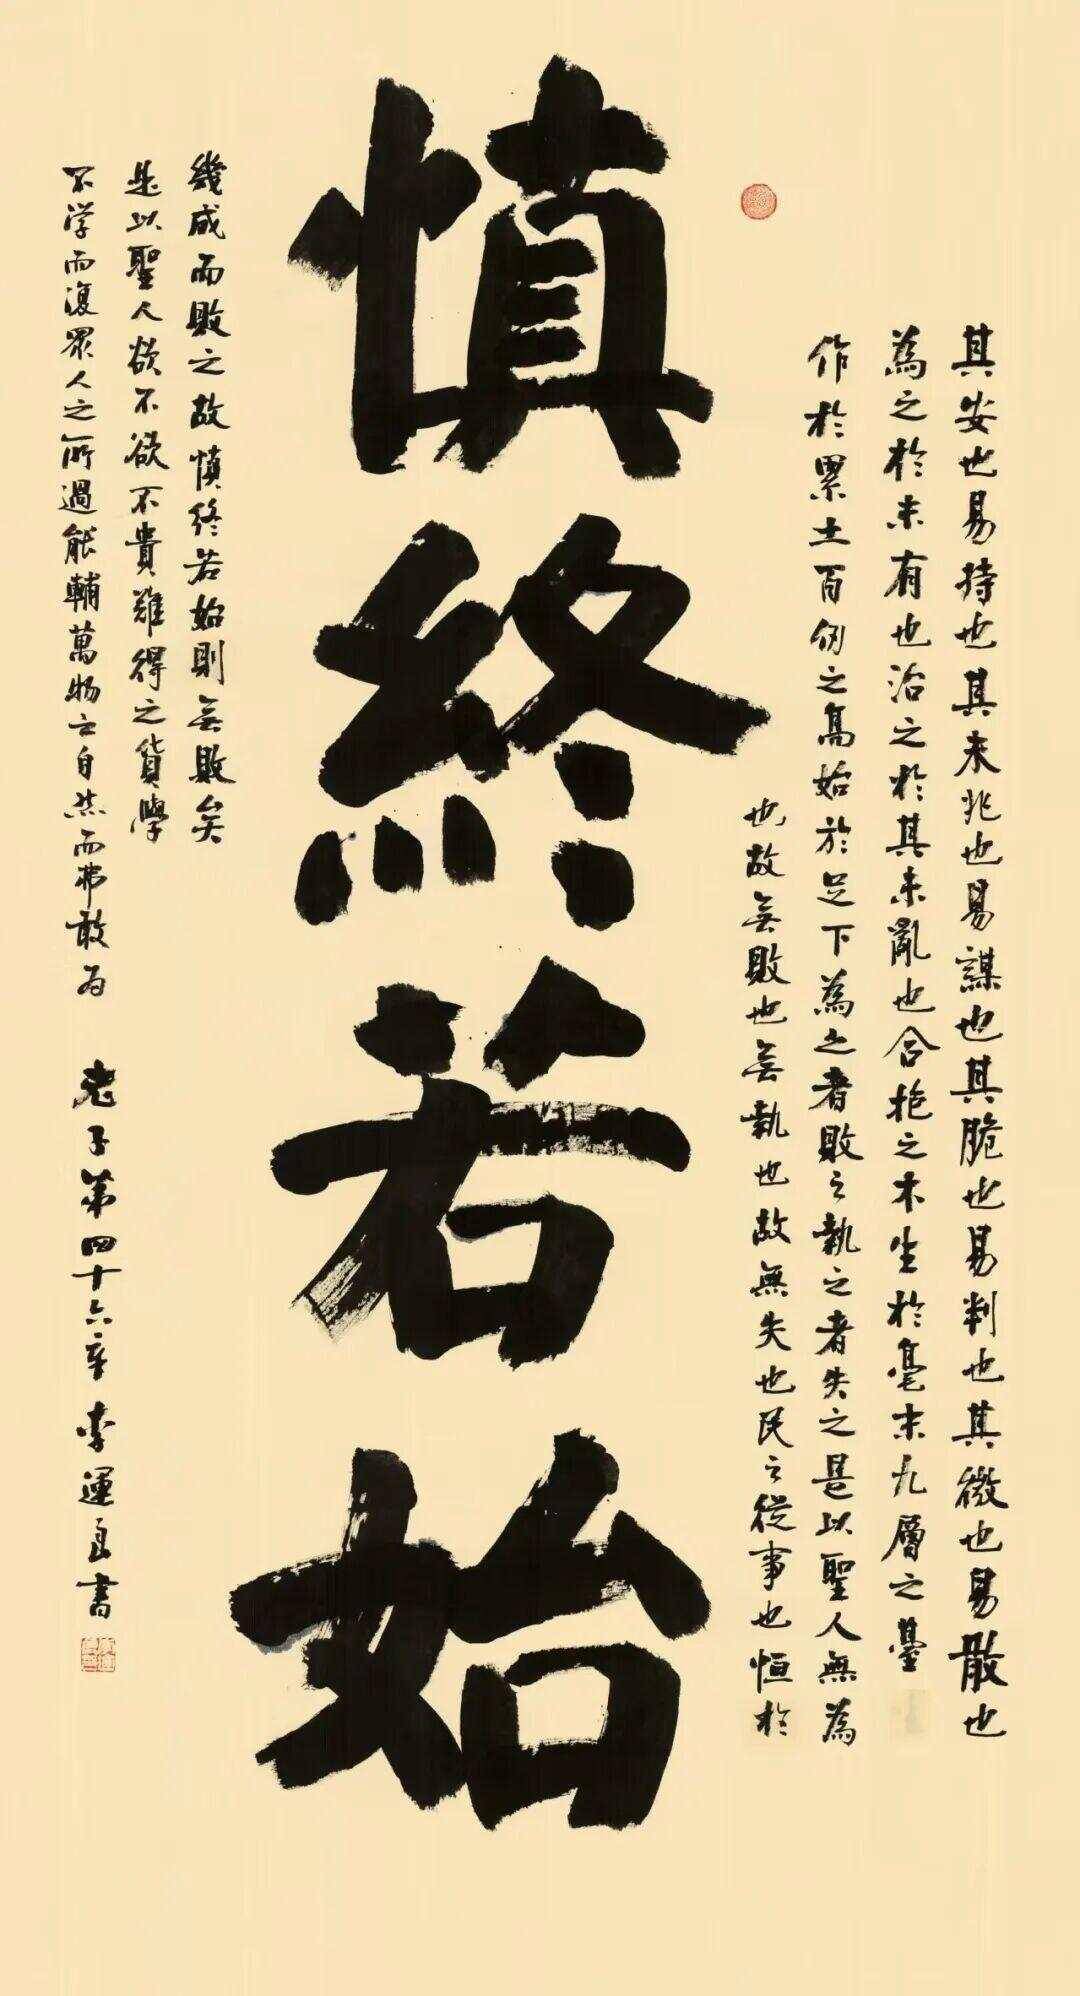 慎終若始
其安也易持也其未兆也易謀也其脆也易判也其微也易散也
為之於未有也治之於其未亂也合抱之木生於毫末九層之臺
作於累土百仞之高始於足下為之者敗之執之者失之是以聖人無為
也故無敗也無執也故無失也民之從事也恒於
幾成而敗之故慎終若始則無敗矣
是以聖人欲不欲不貴難得之貨學
不学而復眾人之所過能輔萬物之自然而弗敢为
老子第四十六章 李運良書